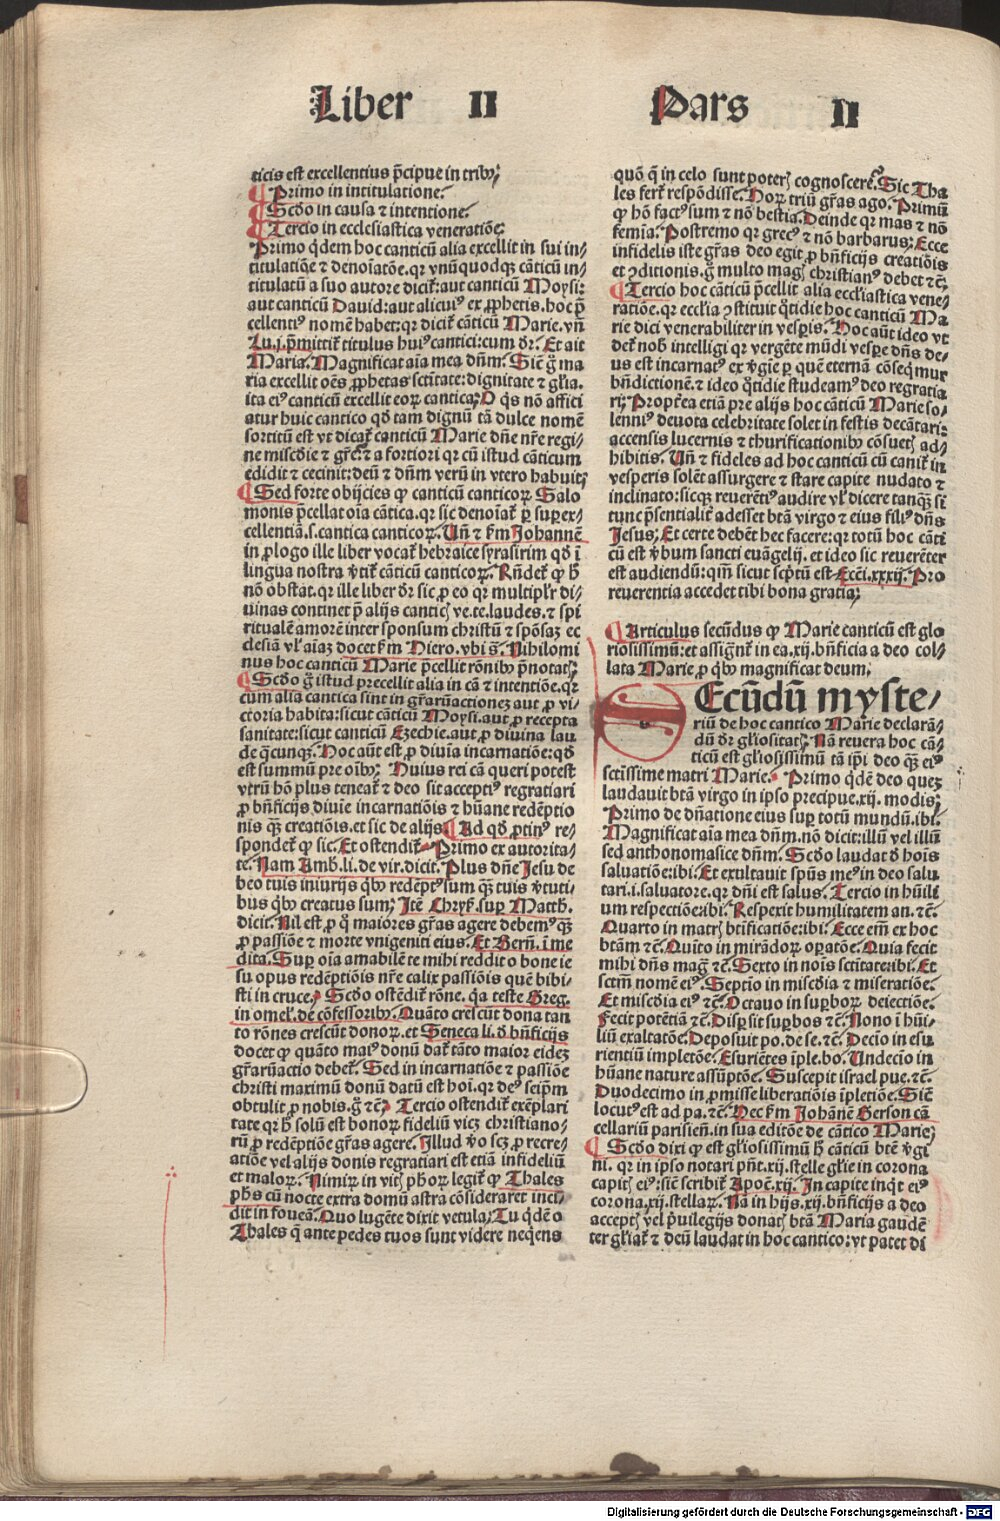 Liber II
Pars II
ticis est excellentius p̄cipue in tribꝰ;
¶ Primo in intitulatione.
¶ Scďo in causa ⁊ intentione.
¶ Tercio in ecclesiastica veneratiōe;
Primo q̇dem hoc canticū alia excellit in sui in⸗
titulatiōe ⁊ denoīatōe. qꝛ vnūquodqꝫ cāticū in⸗
titulatū a suo autore dicit᷑: aut canticū Moysi:
aut canticū Dauid: aut alicuiꝰ ex ꝓphetis. hoc p̄
cellentiꝰ nomē habet: qꝛ dicit᷑ cāticū Marie. vn̄
Lu. j. p̄mittit᷑ titulus huiꝰ cantici: cum dr̄. Et ait
Maria. Magnificat aīa mea dn̄m. Sic̄ g̊ ma
ria excellit oēs ꝓphetas sctītate: dignitate ⁊ gl̄ia.
ita eiꝰ canticū excellit eoꝝ cantica; O q̇s nō affici
atur huic cantico qď tam dignū tā dulce nomē
sortitū est vt dicat᷑ canticū Marie dn̄e nr̄e regi⸗
ne mīscďie ⁊ gr̄e; ⁊ a fortiori qꝛ cū istud cāticum
edidit ⁊ cecinit: deū ⁊ dn̄m verū in vtero habuit;
¶ Sed forte obijcies ꝙ canticū canticoꝝ Salo
monis p̄cellat oīa cātica. qꝛ sic denoīat᷑ ꝑ suꝑex⸗
cellentiā. s. cantica canticoꝝ. Vn̄ ⁊ ẜm Johannē
in ꝓlogo ille liber vocat᷑ hebraice syrasirim qď ī
lingua nostra v̓tit᷑ cāticū canticoꝝ. Rn̄det᷑ ꝙ h̄
nō obstat. qꝛ ille liber dr̄ sic ꝓ eo qꝛ multipl̓r di⸗
uinas continet p̄ alijs canticꝭ ve. te. laudes. ⁊ spi
ritualē amorē inter sponsum christū ⁊ spōsaꝫ ec
clesiā vl̓ aīaꝫ docet ẜm Hiero. vbi s̄. Nihilomi
nus hoc canticū Marie p̄cellit rōnibꝰ p̄notatꝭ;
¶ Scďo g̊ istud precellit alia in cā ⁊ intentiōe. qꝛ
cum alia cantica sint in gr̄aꝝactioneꝫ aut ꝓ vi⸗
ctoria habita: sicut cāticū Moysi. aut ꝓ recepta
sanitate: sicut canticū Ezechie. aut ꝓ diuina lau
de q̄cunqꝫ. Hoc aūt est ꝓ diuīa incarnatiōe: qď
est summū pre oībꝰ; Huius rei cā queri potest
vtrū hō plus teneat᷑ ⁊ deo sit acceptiꝰ regratiari
ꝓ bn̄ficijs diuīe incarnatiōis ⁊ hūane redēptio
nis qꝫ creatiōis. et sic de alijs. ¶ Ad qď ꝓtinꝰ re⸗
spondet᷑ ꝙ sic. Et ostendit᷑. Primo ex autorita⸗
te. Nam Amb. li. de vir. dicit. Plus dn̄e Jesu de
beo tuis iniurijs qbꝰ redēptꝰ sum qꝫ tuis v̓tuti⸗
bus qbꝰ creatus sum; Itē Chryẜ. suꝑ Matth.
dicit. Nil est ꝓ q̊ maiores gr̄as agere debemꝰ qꝫ
ꝓ passiōe ⁊ morte vnigeniti eius. Et Bern̄. ī me
dita. Suꝑ oīa amabilē te mihi reddit o bone ie
su opus redēptiōis nr̄e calix passiōis quē bibi⸗
sti in cruce. Scďo ostēdit᷑ rōne. qa teste Greg.
in omel̓. de cōfessoribꝰ. Quāto crescūt dona tan
to rōnes crescūt donoꝝ. et Seneca li. ď bn̄ficijs
docet ꝙ quāto maiꝰ donū dat᷑ tāto maior eideꝫ
gr̄aꝝactio debet᷑. Sed in incarnatiōe ⁊ passiōe
christi maximū donū datū est hoī. qꝛ deꝰ seip̄m
obtulit ꝓ nobis. g̊ ⁊c̄. Tercio ostendit᷑ exēplari
tate qꝛ h̄ solū est bonoꝝ fideliū vicꝫ christiano⸗
rū ꝓ redēptiōe gr̄as agere. Illud v̓o scꝫ ꝓ recre⸗
atiōe vel alijs donis regratiari est etiā infideliū
et maloꝝ. Nimiꝝ in vitꝭ ph̄oꝝ legit᷑ ꝙ Thales
ph̄s cū nocte extra domū astra cōsideraret inci⸗
dit in foueā. Quo lugēte dixit vetula; Tu q̇dē o
Thales q̇ ante pedes tuos sunt videre neq̇ens
quō q̄ in celo sunt poterꝭ cognoscere? Sic Tha
les fert᷑ respōdisse. Hoꝝ triū gr̄as ago. Primū
ꝙ hō factꝰ sum ⁊ nō bestia. Deinde qꝛ mas ⁊ nō
femīa. Postremo qꝛ grecꝰ ⁊ nō barbarus; Ecce
infidelis iste gr̄as deo egit ꝓ bn̄ficijs creatiōis
et ꝯditionis. g̊ multo magꝭ christianꝰ debet ⁊c̄.
¶ Tercio hoc cāticū p̄cellit alia eccl̓iastica vene⸗
ratiōe. qꝛ eccl̓ia ꝯstituit q̊tidie hoc canticū Ma
rie dici venerabiliter in vesꝑis. Hoc aūt ideo vt
det᷑ nob̓ intelligi qꝛ vergēte mūdi vesꝑe dn̄s de⸗
us est incarnatꝰ ex v̓gīe ꝑ quē eternā cōseq̇mur
bn̄dictionē. ⁊ ideo q̊tidie studeamꝰ deo regratia
ri; Propt̓ea etiā pre alijs hoc cāticū Marie so⸗
lenniꝰ deuota celebritate solet in festis decātari:
accensis lucernis ⁊ thurificationibꝰ cōsuetꝭ ad⸗
hibitis. Vn̄ ⁊ fideles ad hoc canticū cū canit᷑ in
vesperis solēt assurgere ⁊ stare capite nudato ⁊
inclinato: sicqꝫ reuerētiꝰ audire vl̓ dicere tanqꝫ si
tunc p̄sentialit̓ adesset btā virgo ⁊ eius filiꝰ dn̄s
Jesus; Et certe debēt hec facere: qꝛ totū hoc cāti
cū est v̓bum sancti euāgelij. et ideo sic reuerēter
est audiendū: qm̄ sicut sc̓ptū est Ecc̄i. xxxij. Pro
reuerentia accedet tibi bona gratia;
¶ Articulus secūdus ꝙ Marie canticū est glo
riosissimū: et assignāt in ea. xij. bn̄ficia a deo col⸗
lata Marie ꝓ qbꝰ magnificat deum;
SEcūdū myste⸗
riū de hoc cantico Marie declarā⸗
dū dr̄ gl̓iositatꝭ. Nā reuera hoc cā⸗
ticū est gl̓iosissimū tā ip̄i deo qꝫ eiꝰ
sctīssime matri Marie. Primo q̇dē deo queꝫ
laudauit btā virgo in ipso precipue. xij. modis;
Primo de dn̄atione eius suꝑ totū mundū. ibi.
Magnificat aīa mea dn̄m. nō dicit: illū vel illū
sed anthonomasice dn̄m. Scďo laudat ď hoīs
saluatiōe: ibi. Et exultauit spūs meꝰ in deo salu
tari. i. saluatore. qꝛ dn̄i est salus. Tercio in hūili
um respectiōe: ibi. Respexit humilitatem an. ⁊c̄.
Quarto in matrꝭ btīficatiōe: ibi. Ecce em̄ ex hoc
btām ⁊c̄. Quīto in mirādoꝝ oꝑatōe. Quia fecit
mihi dn̄s mag̓ ⁊c̄. Sexto in noīs sctītate: ibi. Et
sctm̄ nomē eiꝰ. Septīo in mīscďia ⁊ miseratiōe.
Et mīscďia eiꝰ ⁊c̄. Octauo in suꝑboꝝ deiectiōe.
Fecit potētiā ⁊c̄. Disꝑsit suꝑbos ⁊c̄. Nono ī hūi⸗
liū exaltatōe. Deposuit po. de se. ⁊c̄. Decīo in esu
rientiū impletōe. Esuriētes īple. bo. Undecīo in
hūane nature assūptōe. Suscepit israel pue. ⁊c̄.
Duodecimo in ꝓmisse liberatiōis īpletiōe. Sic̄
locutꝰ est ad pa. ⁊c̄. Hec ẜm Johānē Gerson cā
cellariū parisien̄. in sua editōe de cātico Marie;
¶ Scďo dixi ꝙ est gl̓iosissimū h̄ cāticū btē v̓gi
ni. qꝛ in ipso notari pn̄t. xij. stelle gl̓ie in corona
capitꝭ eiꝰ: sic̄ scribit᷑ Apoc̄. xij. In capite inq̇t eiꝰ
corona. xij. stellaꝝ. Nā in hijs. xij. bn̄ficijs a deo
acceptꝭ vel p̓uilegijs donatꝭ btā Maria gaudē
ter gl̓iat᷑ ⁊ deū laudat in hoc cantico: vt patet di
Digitalisierung gefördert durch die Deutsche Forschungsgemeinschaft - DFG